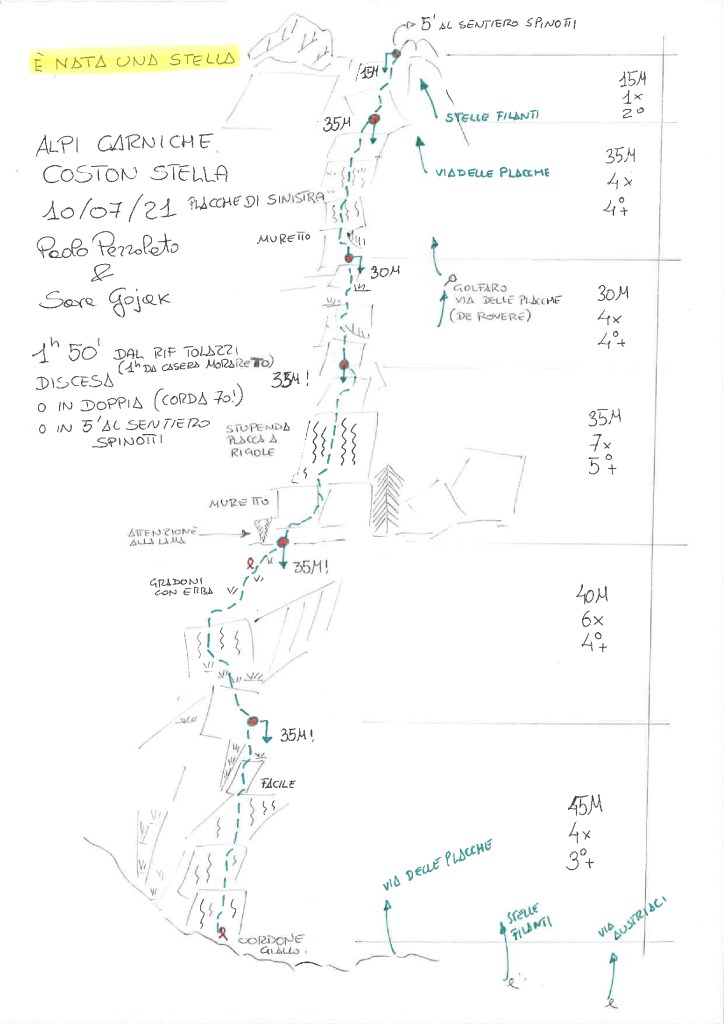 5' AL SENTIERO SPINOTTI
È NATA UNA STELLA
15M
15M
1x
2°
STELLE FILANTI
35M
ALPI CARNICHE
COSTON STELLA
10/07/21 PLACCHE DI SINISTRA
Paolo Pezzolato
&
Sara Gojak
35M
4x
4°+
VIA DELLE PLACCHE
MURETTO
30M
GOLFARO
VIA DELLE PLACCHE
(DE ROVERE)
30M
4x
4°+
1h 50' DAL RIF TOLAZZI
(1h DA CASERA MORARETTO)
DISCESA
O IN DOPPIA (CORDA 70!)
O IN 5' AL SENTIERO
SPINOTTI
35M!
STUPENDA
PLACCA A
RIGOLE
35M
7x
5°+
MURETTO
ATTENZIONE
ALLA LAMA
35M!
GRADONI
CON ERBA
40M
6x
4°+
35M!
FACILE
45M
4x
3°+
VIA DELLE PLACCHE
STELLE
FILANTI
VIA
AUSTRIACI
CORDONE
GIALLO